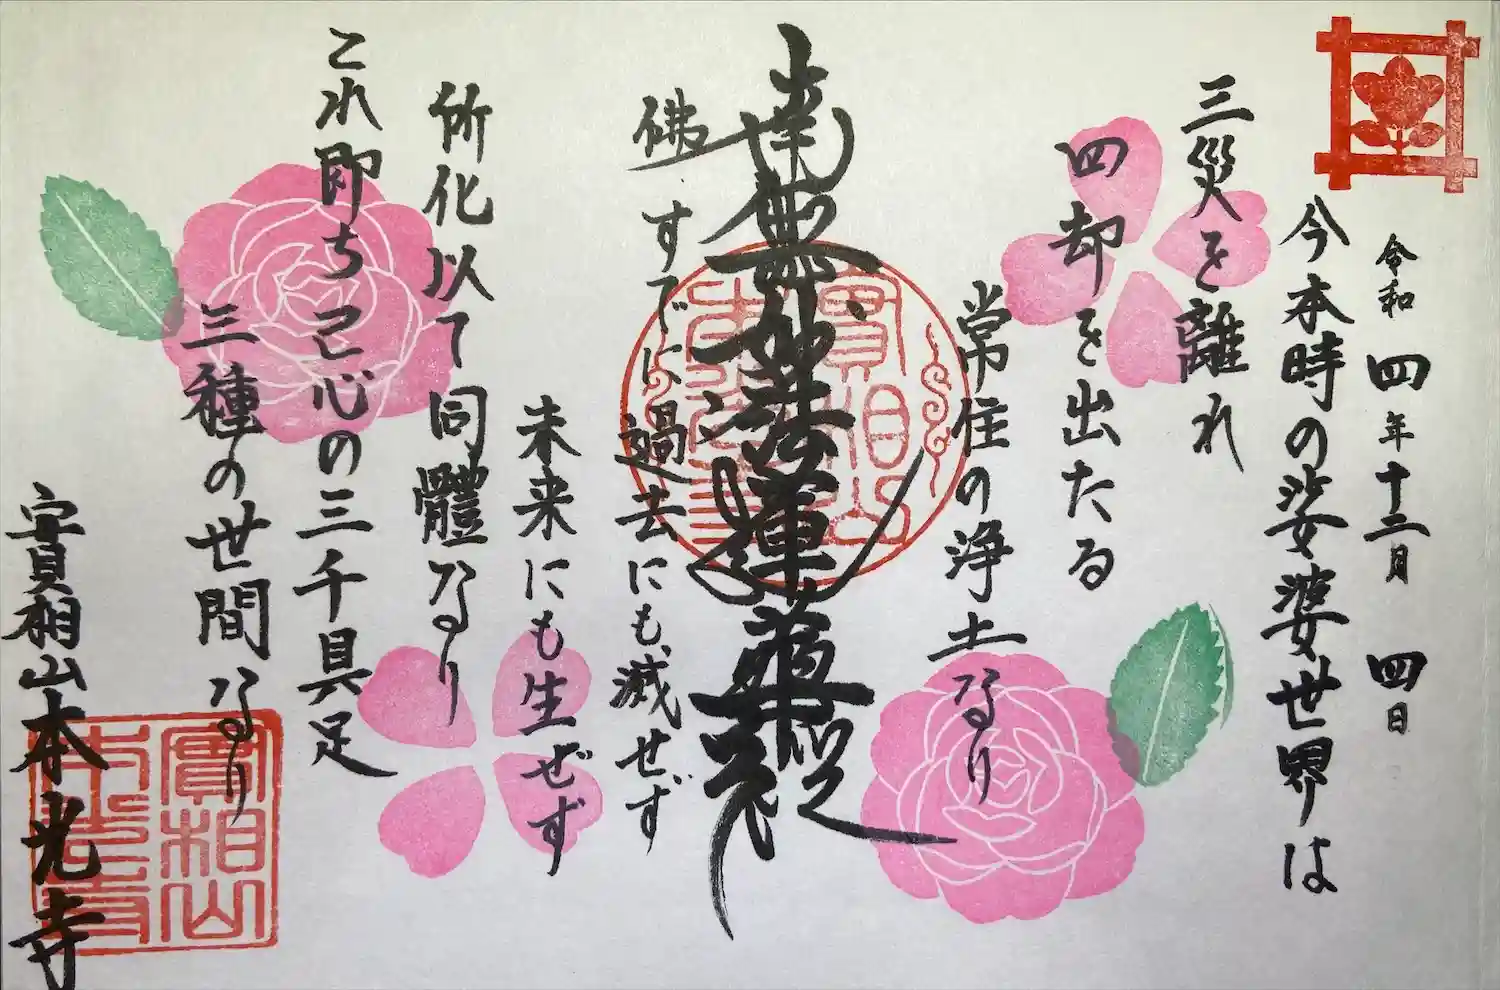 令和四年十二月四日
今本時の娑婆世界は
三災を離れ
四却を出たる
常住の浄土なり
南無妙法蓮華経
佛すでに過去にも滅せず
未来にも生ぜず
所化以て同體なり
これ即ち己心の三千具足
三種の世間なり
實相山本光寺
實相山
本光寺